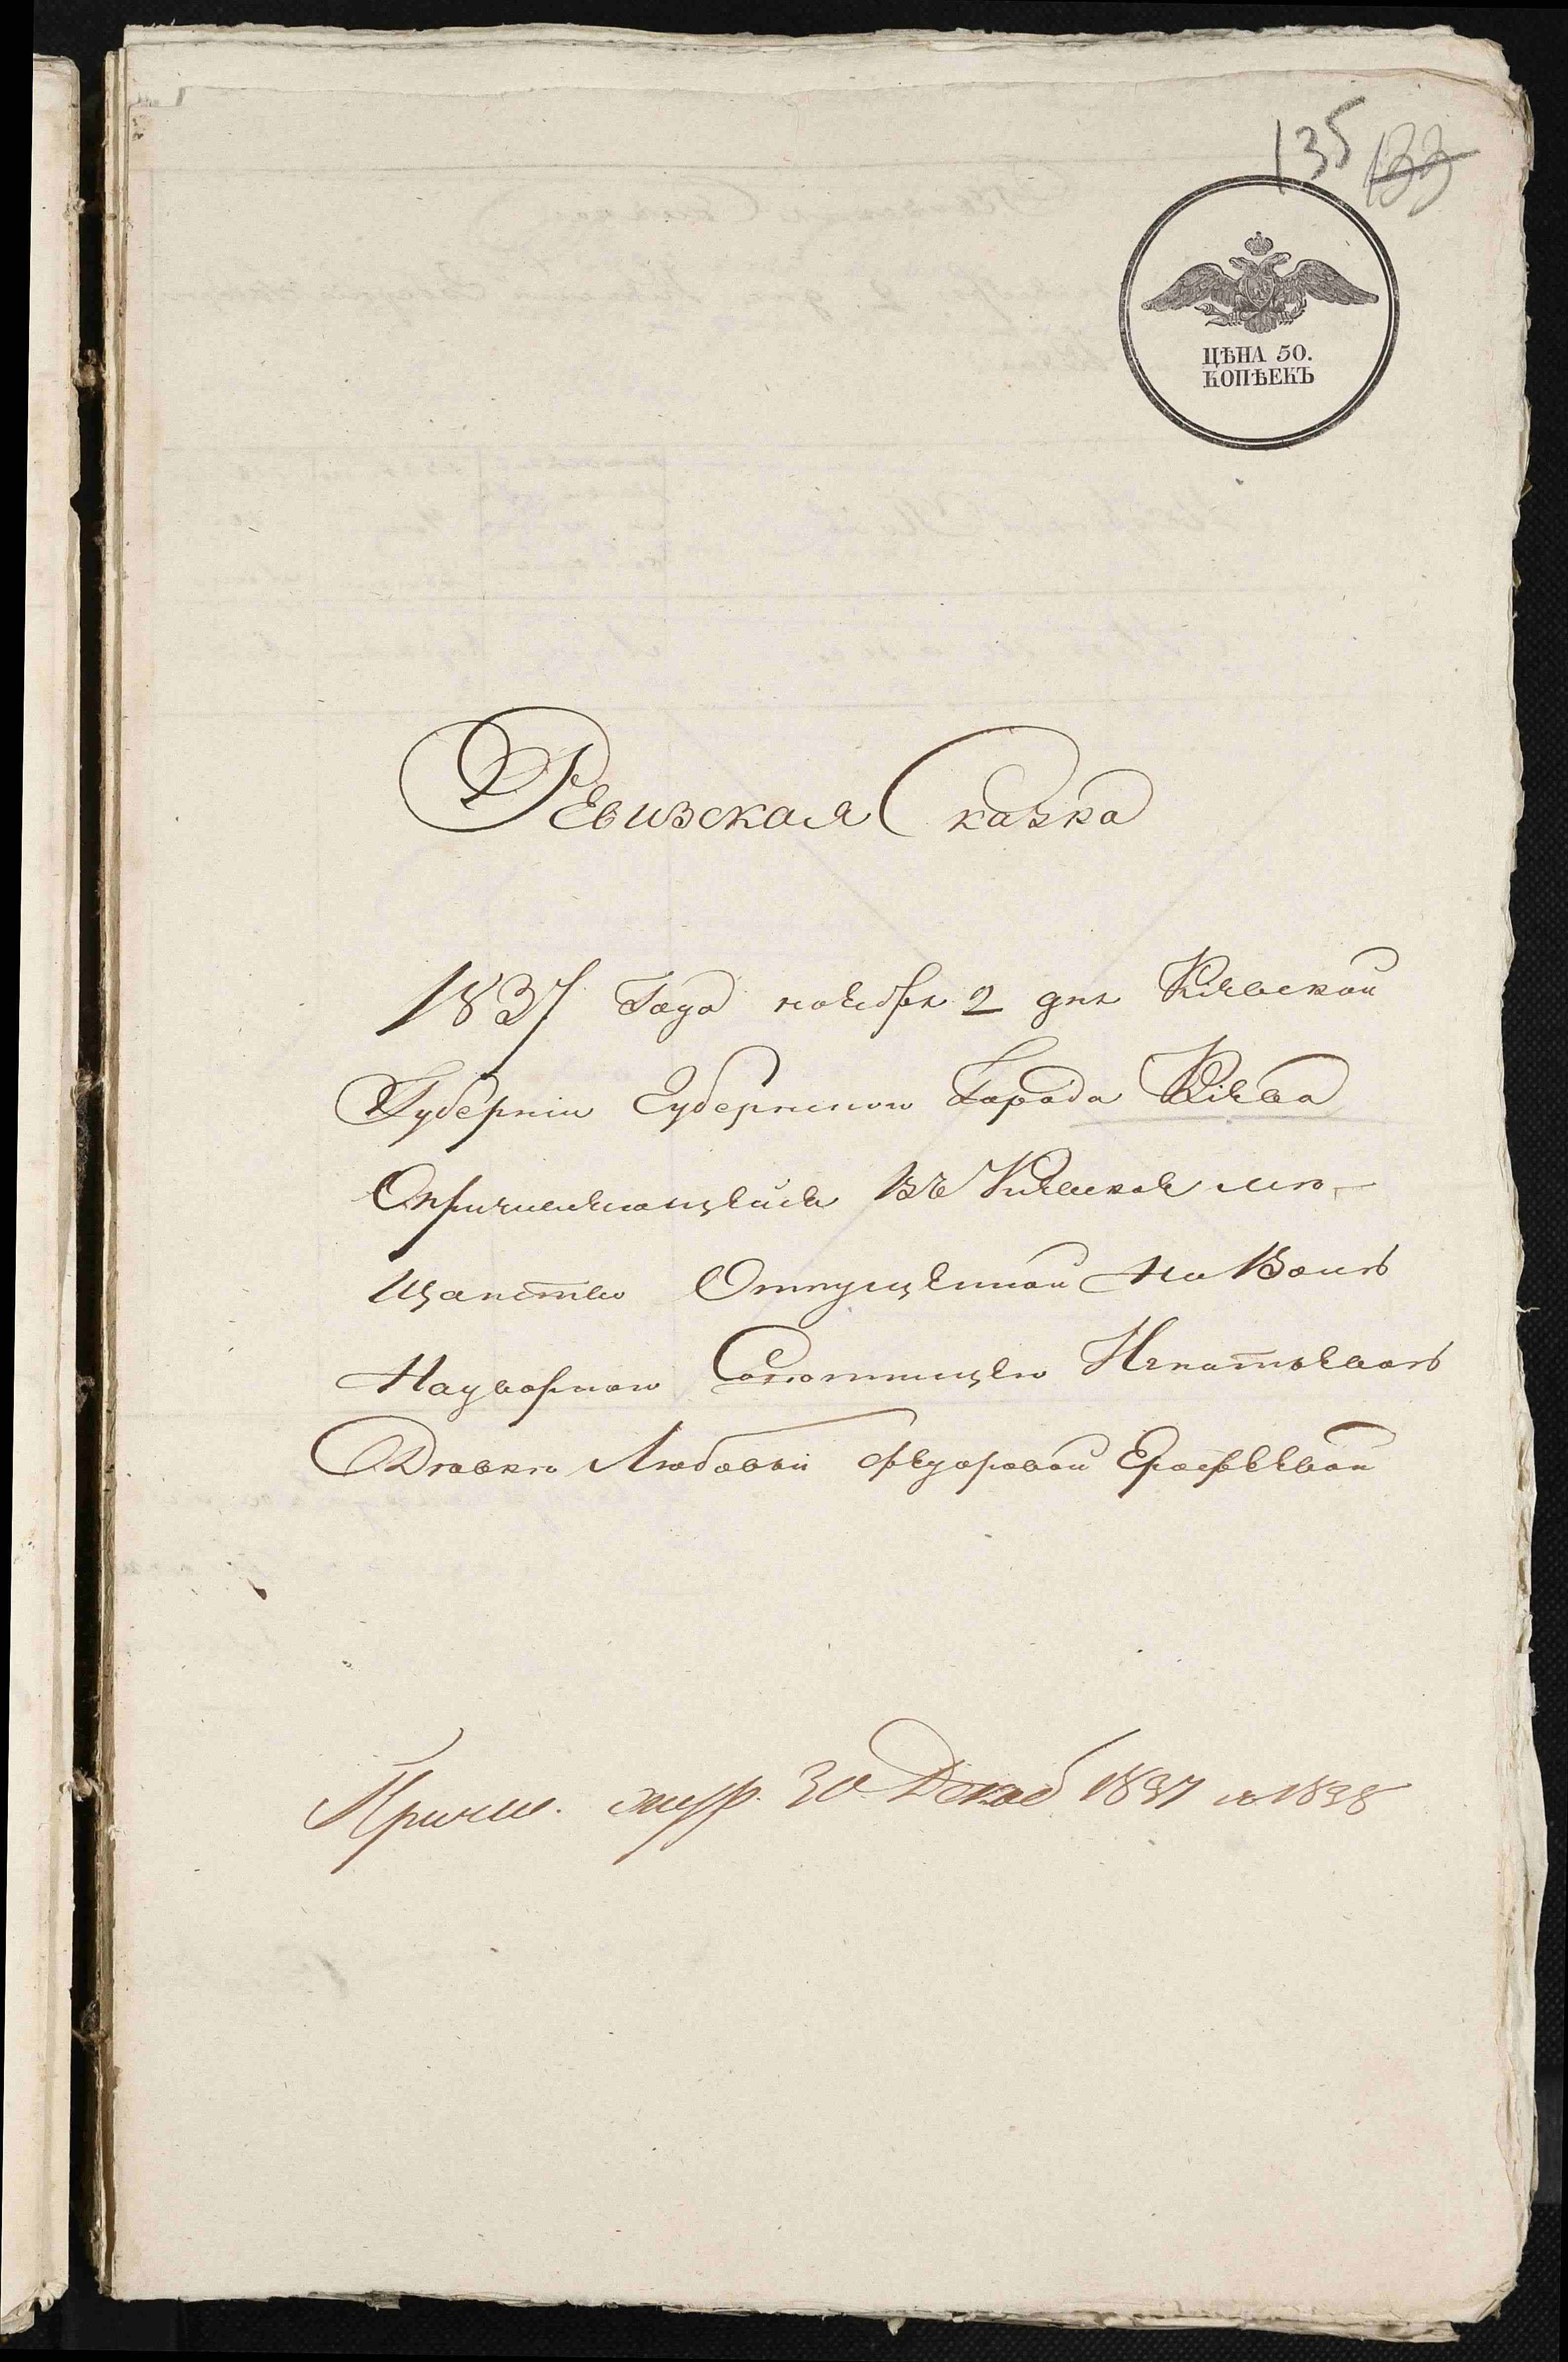 135 133
ЦѢНА 50.
КОПѢЕКЪ
Ревизская Сказка
1837 Года ноября 2 дня Кіевской
Губерніи Губернскою Города Кіева
О причисляющейся Въ Кіевское мѣ-
щанство Отпущенной На Волѣ
Надворною Совѣтницею Игнатьевою
Дѣвкѣ Любовьи Федоровой Ерофѣевой
Причис. 30 Декаб 1837 1838